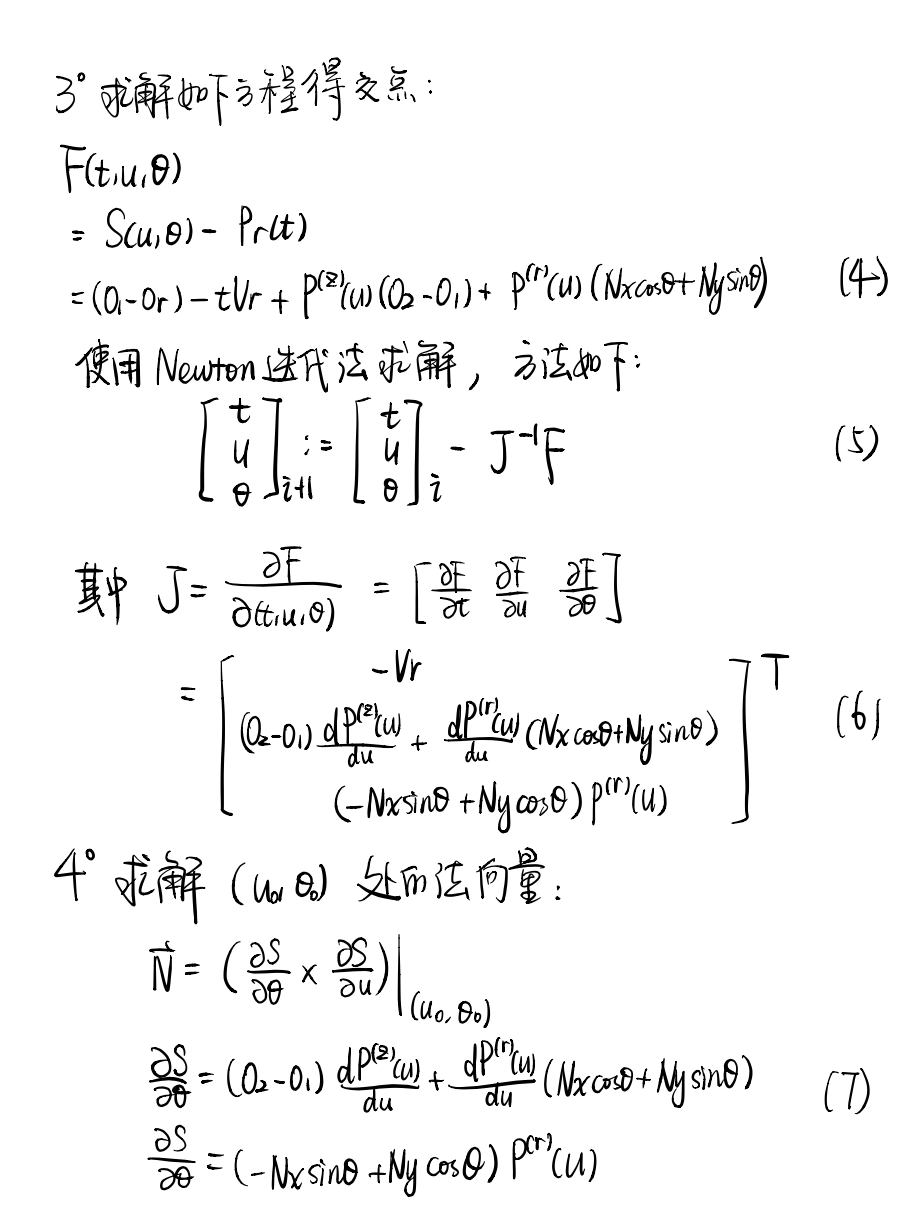 3° 求解如下方程得交点:
F(t,u,θ)
= S(u,θ) - Pr(t)
= (O₁-Or) - tVr + P⁽ᶻ⁾(u)(O₂-O₁) + P⁽ʳ⁾(u)(Nxcosθ+Nysinθ) (4)
使用Newton迭代法求解, 方法如下:
[t u θ]ᵢ₊₁ := [t u θ]ᵢ - J⁻¹F (5)
其中 J = ∂F/∂(t,u,θ) = [∂F/∂t ∂F/∂u ∂F/∂θ]
= [-Vr
(O₂-O₁) dP⁽ᶻ⁾(u)/du + dP⁽ʳ⁾(u)/du (Nxcosθ+Nysinθ)
(-Nxsinθ+Nycosθ)P⁽ʳ⁾(u)]ᵀ (6)
4° 求解 (u₀,θ₀) 处的法向量:
N⃗ = (∂S/∂θ × ∂S/∂u)|(u₀,θ₀)
∂S/∂θ = (O₂-O₁) dP⁽ᶻ⁾(u)/du + dP⁽ʳ⁾(u)/du (Nxcosθ+Nysinθ) (7)
∂S/∂θ = (-Nxsinθ+Nycosθ)P⁽ʳ⁾(u)